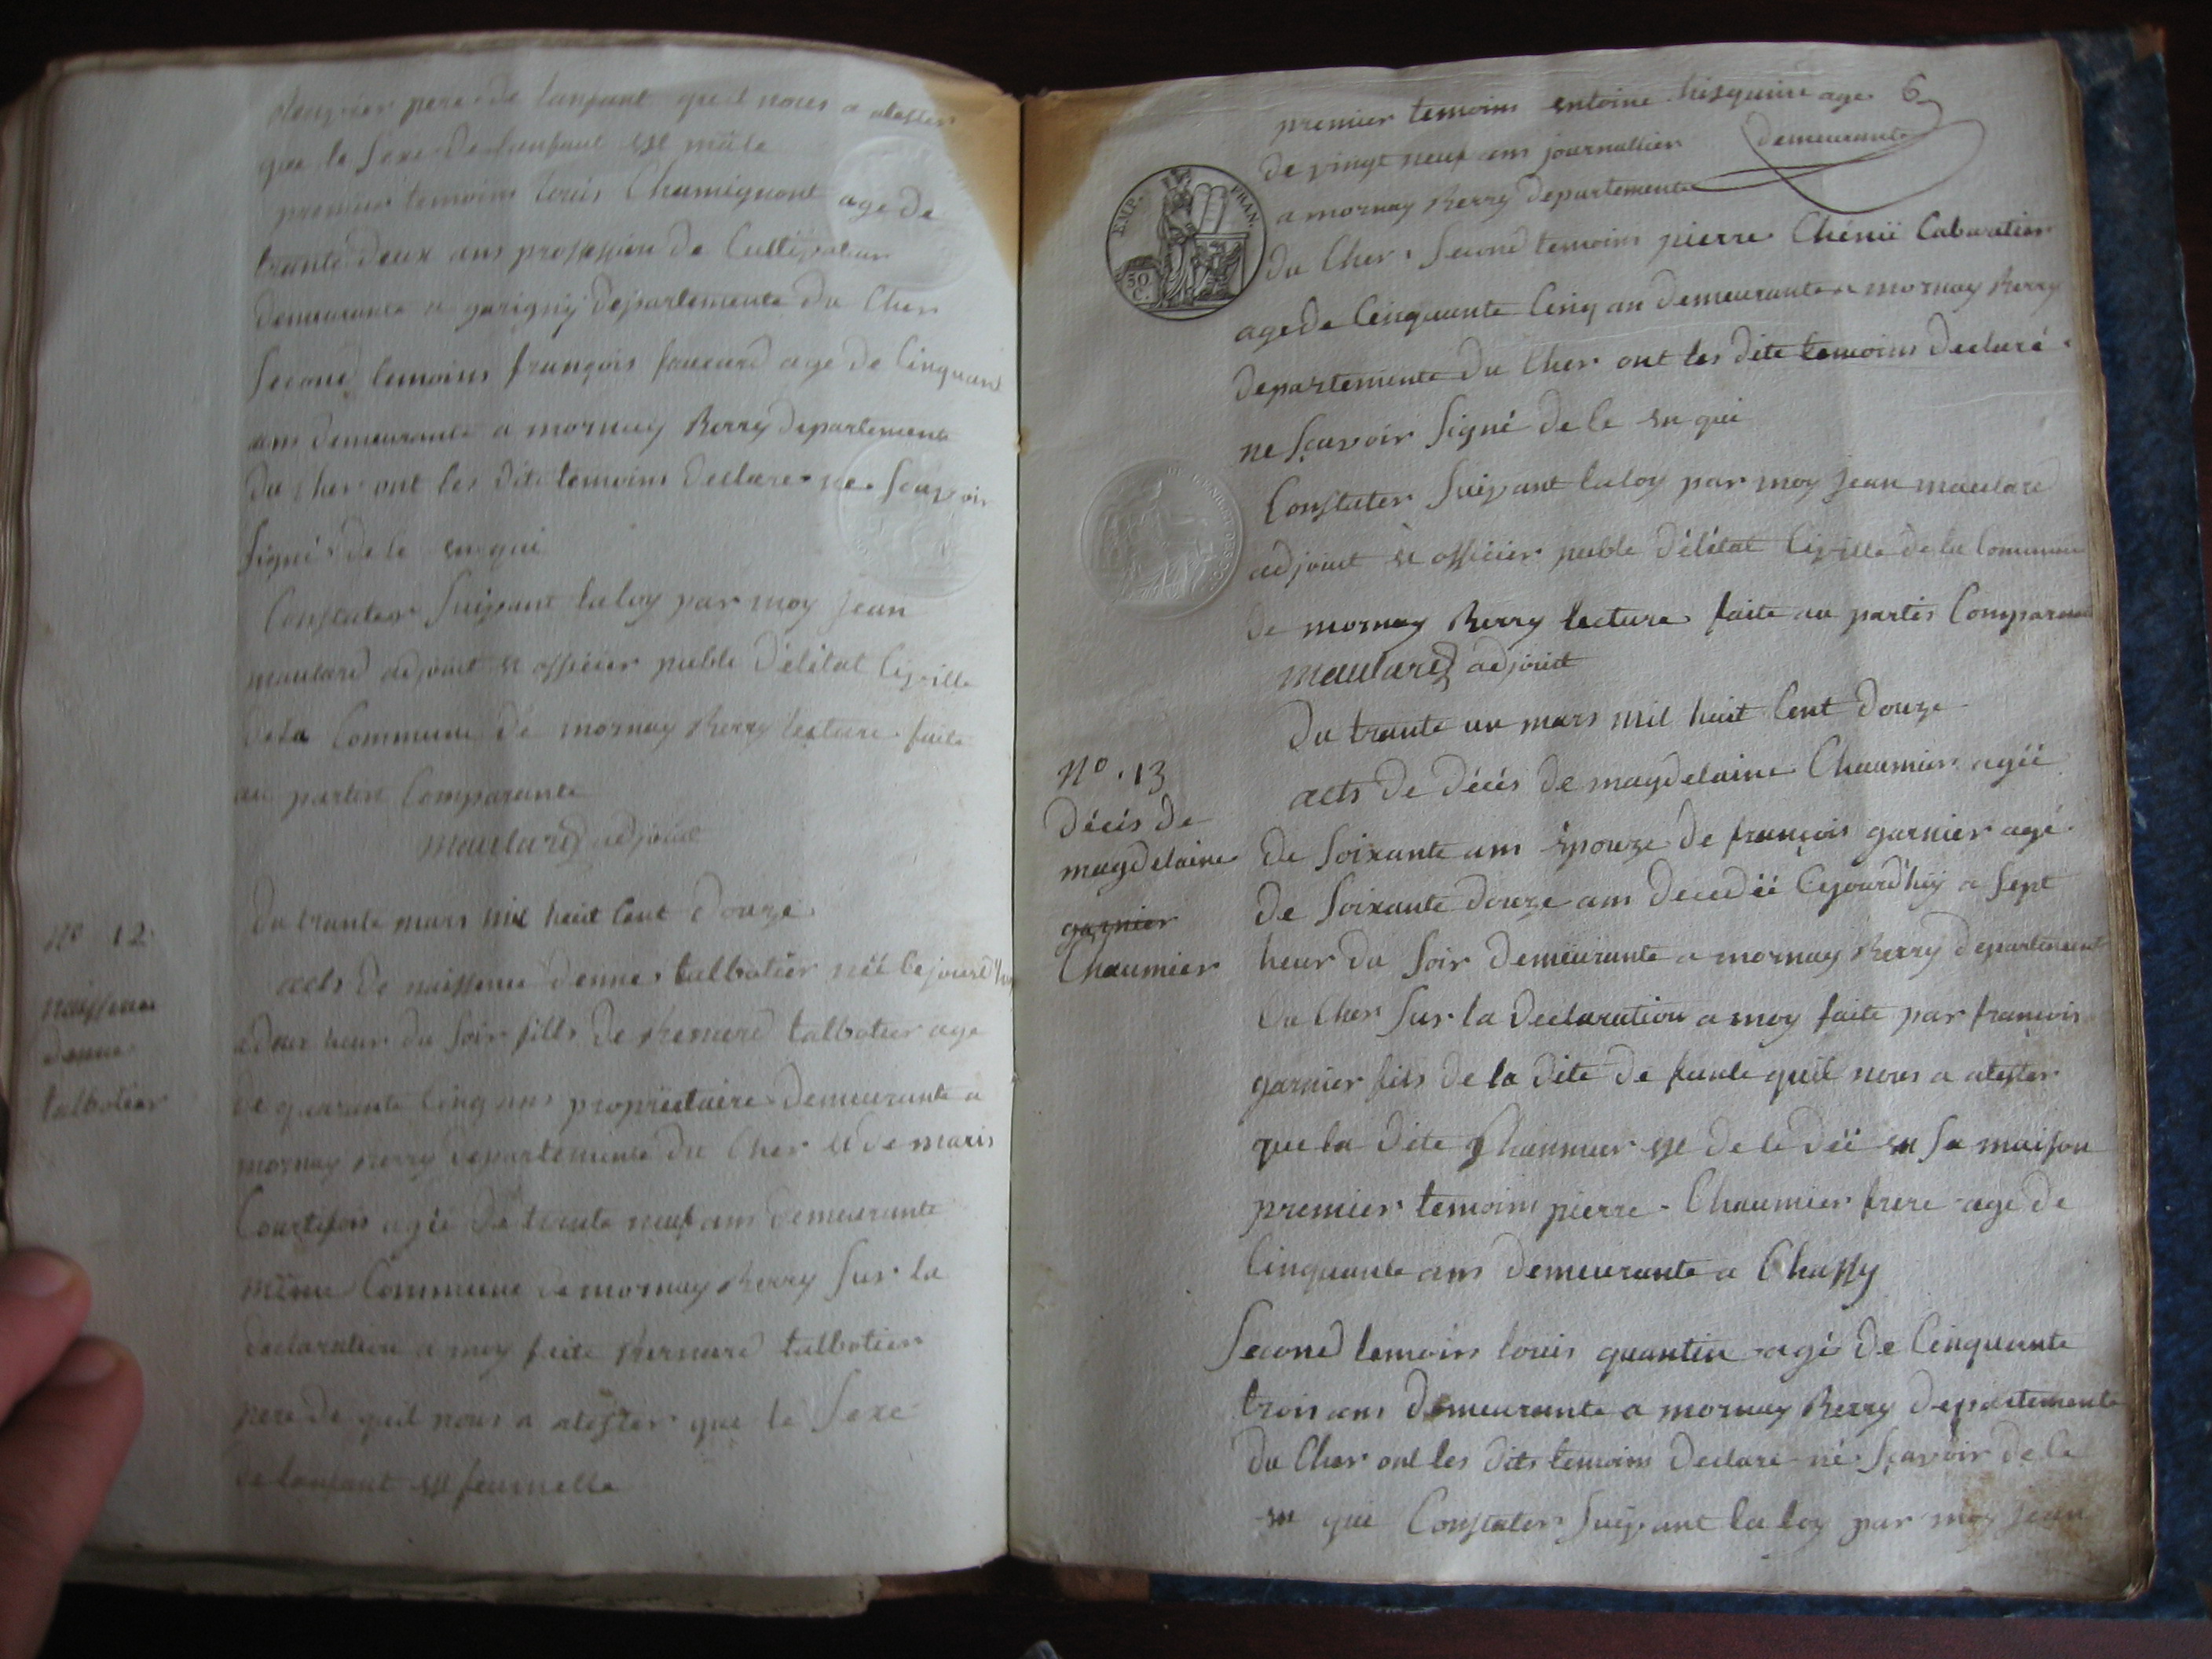 pere de lanfant quil nous a atester
que le sexe de lanfant est mâle
premier temoins louis Chamignont age de
trante deux ans profession de Cultivateur
demeurante a garigny departemente du Cher
second temoins françois age de Cinquante
ans demeurante a mornay Berry departemente
du Cher ont les dite temoins declare ne scavoir
signé de ce en qui
Constater suivant la loy par moy jean
maulard adjoint et officier publc d'élétat Civille
de la Commune de mornay Berry lecture faite
au parties Comparante
maulard adjoint
N° 12
naissence
denne
talbotier
du trante mars mil huit Cent douze
acts de naissence denne talbotier néé Cejourd'huy
a deux heur du soir fille de Bernard talbotier age
de quarante Cinq ans propriétaire demeurante a
mornay Berry departemente du Cher et de marie
Courtefois agéé de trante neuf ans demeurante
même Commune de mornay Berry sur la
declaration a moy faite Bernard talbotier
pere de quil nous a atester que le sexe
de lanfant est feumelle
6
premier temoins entoine age
de vingt neuf ans journallier demeurante
a mornay Berry departemente
EMP. FRAN.
50 C.
du Cher. second temoins pierre Cabaretier
age de Cinquante Cinq an demeurante a mornay Berry
departemente du Cher ont les dite temoins declaré
ne scavoir signé de ce en qui
Constater suivant la loy par moy jean maulard
adjoint et officier publc d'élétat Civille de la Commune
de mornay Berry lecture faite au partis Comparante
maulard adjoint
N° . 13
décés de
magdelaine
garnier
Chaumier
du trante un mars mil huit Cent douze
acts de décés de magdelaine Chaumier agéé
de soixante ans épouze de françois garnier agé
de soixante douze ans decedéé Cejourd'huy a sept
heur du soir demeurante a mornay Berry departement
du Cher sur la declaration a moy faite par françois
garnier fils de la dite de funte quil nous a atester
que la dite Chaumier est de ce déé en sa maison
premier temoins pierre - Chaumier frere age de
Cinquante ans demeurante a Chassy
second temoins louis quantin agé de Cinquante
trois ans demeurante a mornay Berry departemente
du Cher ont les dits temoins declaré né scavoir de ce
en qui Constater suivant la loy par moy jean